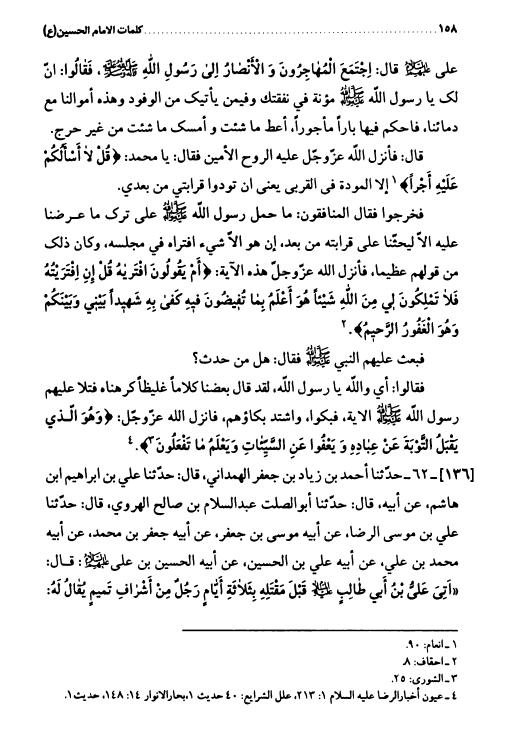 ١٥٨ ........................................ كلمات الامام الحسين(ع)
على عليهما السلام قال: اِجْتَمَعَ الْمُهاجِرُونَ وَ الْأَنْصارُ اِلىٰ رَسُولِ اللّٰهِ صلى الله عليه وآله وسلم، فَقالُوا: انّ
لک يا رسول اللّه صلى الله عليه وآله وسلم مؤنة في نفقتك وفيمن يأتيک من الوفود وهذه أموالنا مع
دمائنا، فاحكم فيها باراً مأجوراً، أعط ما شئت و أمسک ما شئت من غير حرج.
قال: فأنزل اللّه عزّوجلّ عليه الروح الأمين فقال: يا محمد: ﴿قُلْ لاٰ أَسأَلُكُمْ
عَلَيْهِ أَجْراً﴾١ إلا المودة فى القربى يعنى ان تودوا قرابتي من بعدي.
فخرجوا فقال المنافقون: ما حمل رسول اللّه صلى الله عليه وآله وسلم على ترک ما عـرضنا
عليه الاّ ليحثّنا على قرابته من بعد، إن هو الاّ شيء افتراه في مجلسه، وكان ذلک
من قولهم عظيما، فأنزل الله عزّوجلّ هذه الآية: ﴿أَمْ يَقُولُونَ افْتَريٰهُ قُلْ إِنِ افْتَرَيْتُهُ
فَلاٰ تَمْلِكُونَ لِي مِنَ اللّٰهِ شَيْئاً هُوَ أَعْلَمُ بِمٰا تُفِيضُونَ فِيهِ كَفىٰ بِهِ شَهِيداً بَيْنِي وَبَيْنَكُمْ
وَهُوَ الْغَفُورُ الرَّحيمُ﴾.٢
فبعث عليهم النبي صلى الله عليه وآله وسلم فقال: هل من حدث؟
فقالوا: أي واللّه يا رسول اللّه، لقد قال بعضنا كلاماً غليظاً كرهناه فتلا عليهم
رسول اللّه صلى الله عليه وآله وسلم الاية، فبكوا، واشتد بكاؤهم، فانزل الله عزّوجلّ: ﴿وَهُوَ الَّـذي
يَقْبَلُ التَّوْبَةَ عَنْ عِبٰادِهِ وَ يَعْفُوا عَنِ السَّيِّئٰاتِ وَيَعْلَمُ مٰا تَفْعَلُونَ﴾٣.٤
[١٣٦] ـ ٦٢ ـ حدّثنا أحمد بن زياد بن جعفر الهمداني، قال: حدّثنا علي بن ابراهيم ابن
هاشم، عن أبيه، قال: حدّثنا أبوالصلت عبدالسلام بن صالح الهروي، قال: حدّثنا
علي بن موسى الرضا، عن أبيه موسى بن جعفر، عن أبيه جعفر بن محمد، عن أبيه
محمد بن علي، عن أبيه علي بن الحسين، عن أبيه الحسين بن على عليهم السلام: قـال:
«اَتِىَ عَلىُّ بْنُ أَبي طالِبٍ عليه السلام قَبْلَ مَقْتَلِهِ بِثَلاٰثَةِ أَيّٰامٍ رَجُلٌ مِنْ أَشْرٰافِ تَميمٍ يُقٰالُ لَهُ:
١ ـ انعام: ٩٠.
٢ ـ احقاف: ٨.
٣ ـ الشورى: ٢٥.
٤ ـ عيون أخبارالرضا عليه السلام ١: ٢١٣، علل الشرايع: ٤٠ حديث ١، بحارالانوار ١٤: ١٤٨، حديث١.